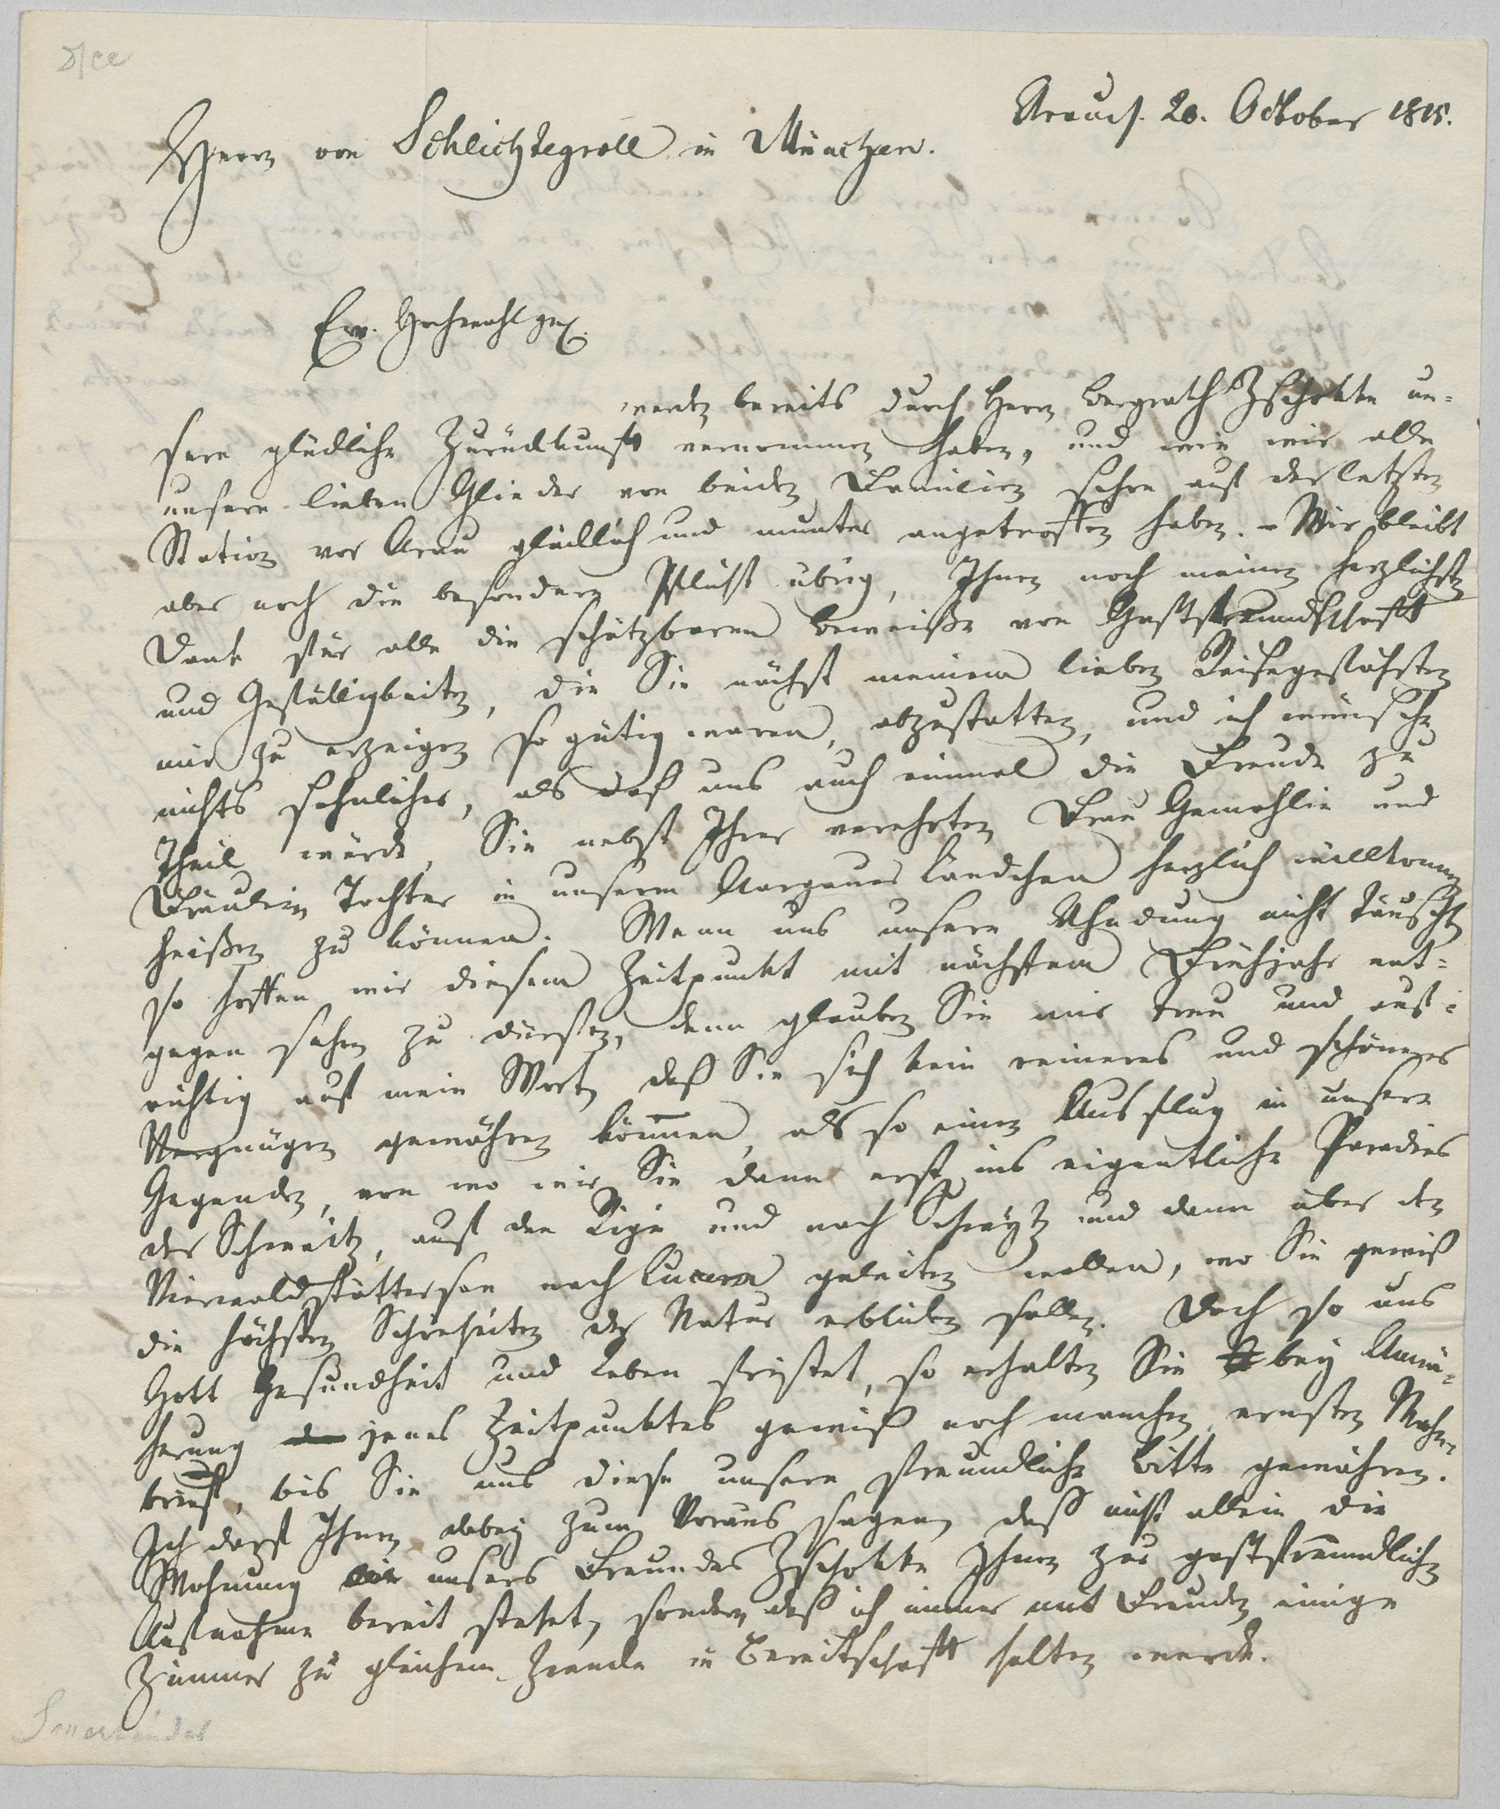 Arau d. 20. October 1815.
Herrn von Schlichtegroll in München.
Ew. Hochwohlgeb.
werden bereits durch Herrn Bergrath Zschokke un-
sere glückliche Zurückkunft vernommen haben, und wie wir alle
unsere lieben Glieder von beiden Familien schon auf der letzten
Station vor Arau glücklich und munter angetroffen haben. – Mir bleibt
aber noch die besondere Pflicht übrig, Ihnen noch meinen herzlichsten
Dank für alle die schätzbaren Beweiße von Gastfreundschaft
und Gefälligkeiten, die Sie nächst meinem lieben Reisegefährten
mir zu erzeigen so gütig waren, abzustatten, und ich wünsche
nichts sehnlicher, als daß uns auch einmal die Freude zu
Theil würde, Sie nebst Ihrer verehrten Frau Gemahlin und
Fräulein Tochter in unserm Aargauer Ländchen herzlich willkommen
heißen zu können. Wenn uns unsere Ahndung nicht täuscht,
so hoffen wir diesem Zeitpunkt mit nächstem Frühjahr ent-
gegen sehen zu dürfen, denn glauben Sie mir treu und auf-
richtig auf mein Wort, daß Sie sich kein reineres und schöneres
Vergnügen gewähren können, als so einen Ausflug in unsere
Gegenden, von wo wir Sie dann erst ins eigentliche Paradies
der Schweitz, auf den Rigi und nach Schwytz und dann über den
Vierwaldstättersee nach Lucern geleiten wollen, wo Sie gewiß
die höchsten Schönheiten der Natur erblicken sollen. Doch so uns
Gott Gesundheit und Leben fristet, so erhalten Sie bey Annä-
herung jenes Zeitpunktes gewiß noch manchen ernsten Mahn-
brief, bis Sie uns diese unsere freundliche Bitte gewähren.
Ich darf Ihnen dabey zum Voraus sagen, daß nicht allein die
Wohnung unsers Freundes Zschokke Ihnen zur gastfreundlichen
Aufnahme bereit stehet, sondern daß ich immer mit Freuden einige
Zimmer zu gleichem Zwecke in Bereitschaft halten werde.
Sauerländer